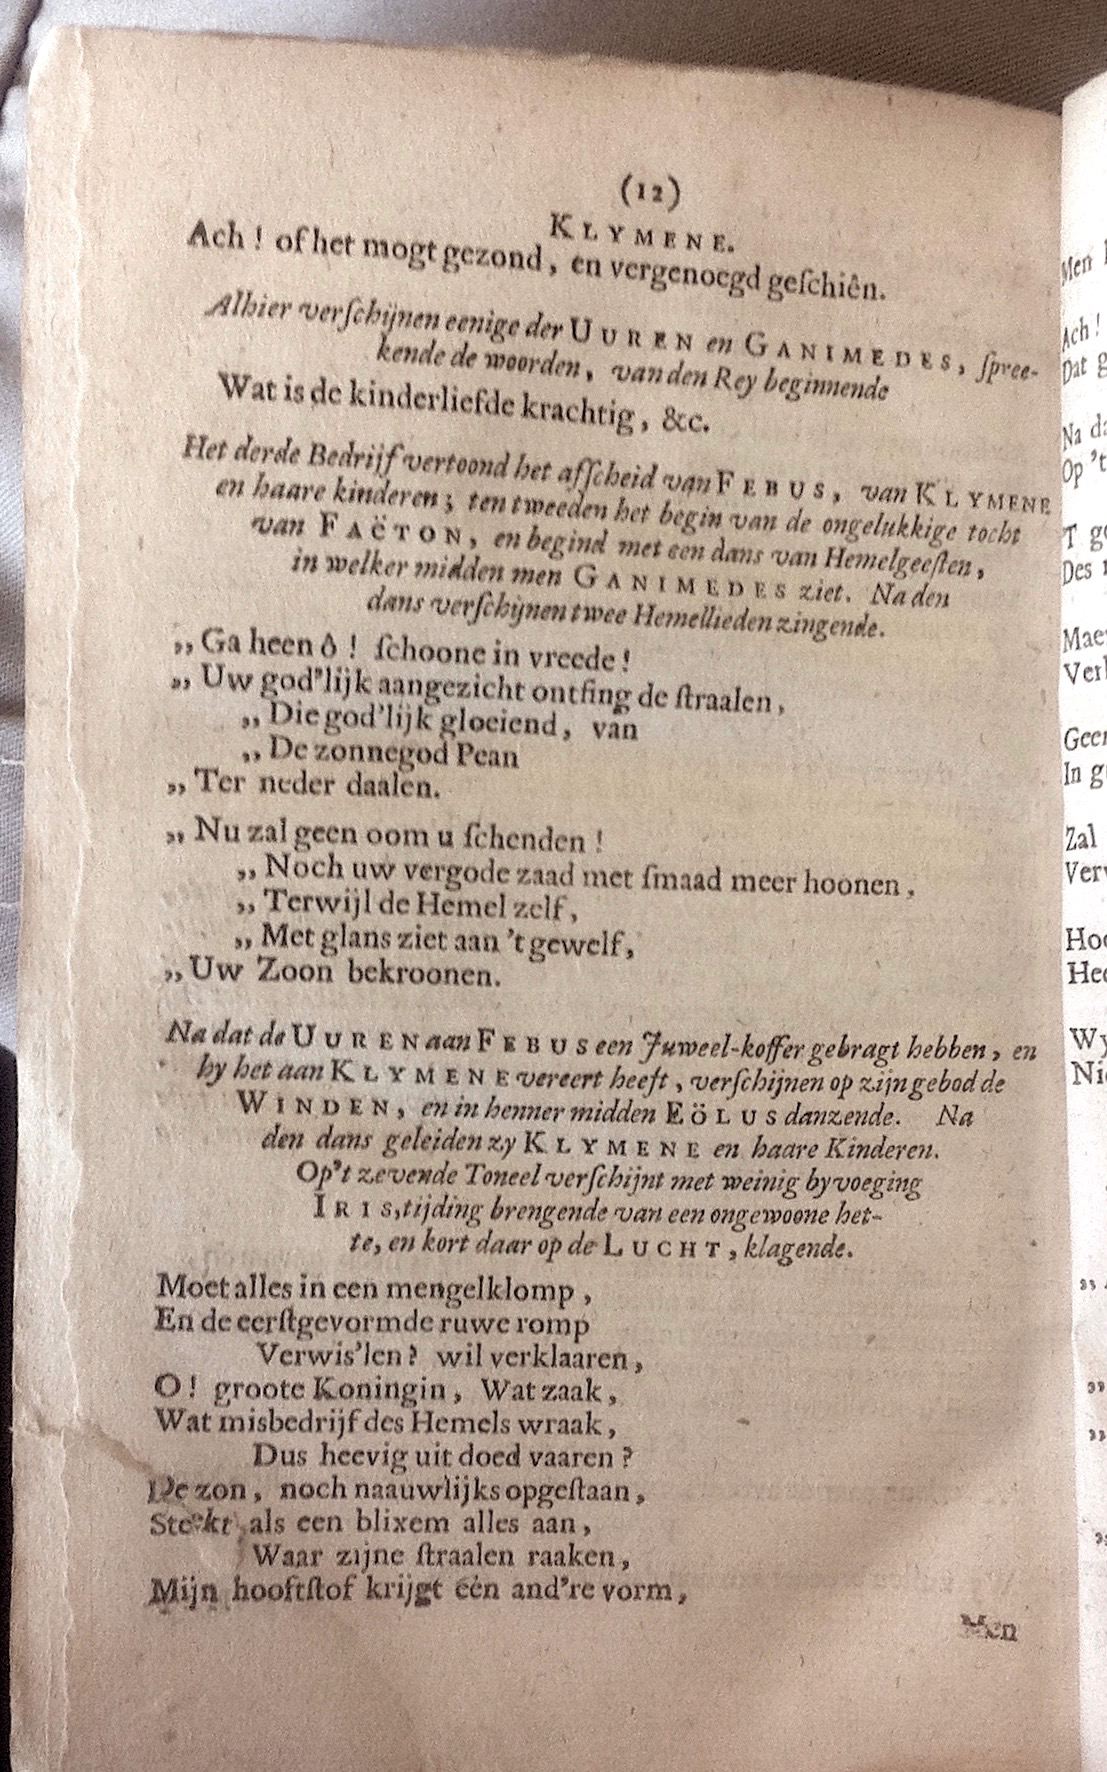 (12)
KLYMENE.
Ach! of het mogt gezond, en vergenoegd geſchiên.
Alhier verſchijnen eenige der UUREN en GANIMEDES, ſpree-
kende de woorden, van den Rey beginnende
Wat is de kinderliefde krachtig, &c.
Het derde Bedrijf vertoond het afſcheid van FEBUS, van KLYMENE
en haare kinderen; ten tweeden het begin van de ongelukkige tocht
van FAËTON, en begind met een dans van Hemelgeeſten,
in welker midden men GANIMEDES ziet. Na den
dans verſchijnen twee Hemellieden zingende.
„ Ga heen ô! ſchoone in vreede!
„ Uw god'lijk aangezicht ontfing de ſtraalen,
„ Die god'lijk gloeiend, van
„ De zonnegod Pean
„ Ter neder daalen.
„ Nu zal geen oom u ſchenden!
„ Noch uw vergode zaad met ſmaad meer hoonen,
„ Terwijl de Hemel zelf,
„ Met glans ziet aan 't gewelf,
„ Uw Zoon bekroonen.
Na dat de UUREN aan FEBUS een Juweel-koffer gebragt hebben, en
hy het aan KLYMENE vereert heeft, verſchijnen op zijn gebod de
WINDEN, en in henner midden EÖLUS danzende. Na
den dans geleiden zy KLYMENE en haare Kinderen.
Op't zevende Toneel verſchijnt met weinig byvoeging
IRIS, tijding brengende van een ongewoone het-
te, en kort daar op de LUCHT, klagende.
Moet alles in een mengelklomp,
En de eerſtgevormde ruwe romp
Verwis'len? wil verklaaren,
O! groote Koningin, Wat zaak,
Wat misbedrijf des Hemels wraak,
Dus heevig uit doed vaaren?
De zon, noch naauwlijks opgeſtaan,
Steekt als een blixem alles aan,
Waar zijne ſtraalen raaken,
Mijn hooftſtof krijgt eén and're vorm,
Men